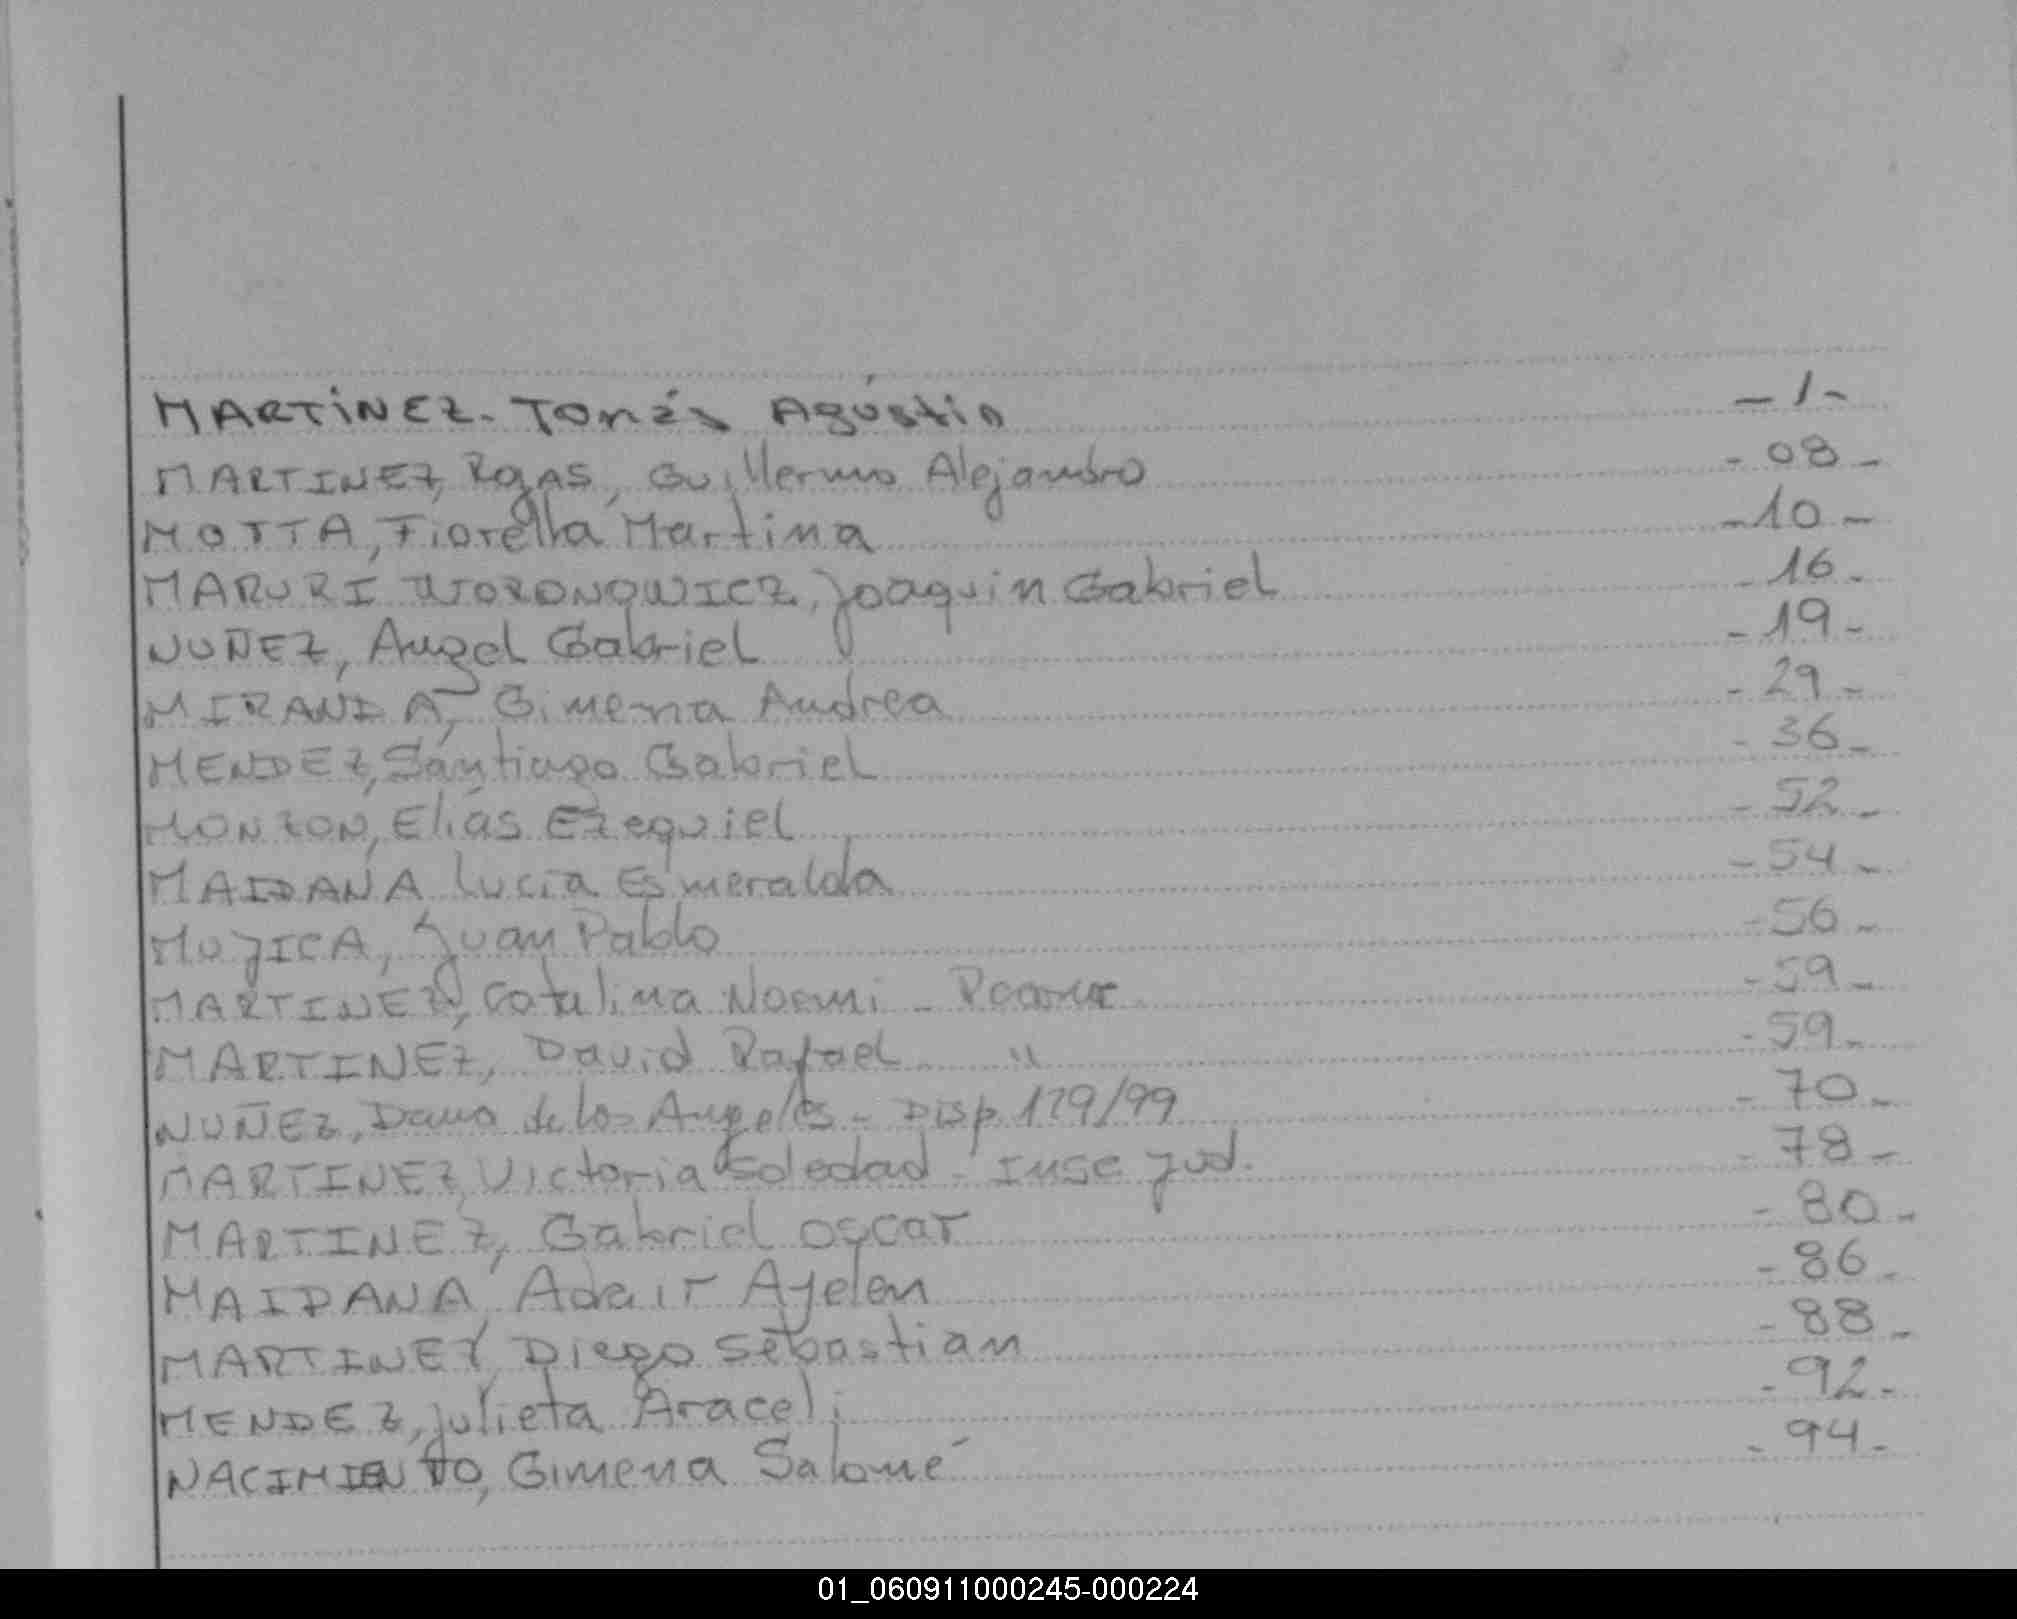 MARTINEZ - Tomás Agústin - 1 -
MARTINEZ, Rojas, Guillermo Alejandro - 08 -
MOTTA, Fiorella Martina - 10 -
MARURI WORONOWICZ, Joaquin Gabriel - 16 -
NUÑEZ, Angel Gabriel - 19 -
MIRANDA, Gimena Andrea - 29 -
MENDEZ, Santiago Gabriel - 36 -
MONZON, Elías Ezequiel - 52 -
MAIDANA Lucía Esmeralda - 54 -
MUJICA, Juan Pablo - 56 -
MARTINEZ, Catalina Noemi - - 59 -
MARTINEZ, David Rafael " - 59 -
NUÑEZ, de los Angeles - Disp. 179/99 - 70 -
MARTINEZ, Victoria Soledad - Insc Jud. - 78 -
MARTINEZ, Gabriel Oscar - 80 -
MAIDANA, Adair Ayelen - 86 -
MARTINEZ, Diego Sebastian - 88 -
MENDEZ, Julieta Araceli - 92 -
NACIMIENTO, Gimena Salomé - 94 -
01_060911000245-000224